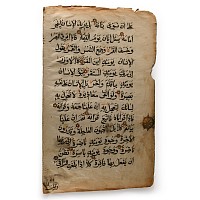 على ان نسوي بنانه بل يريد الانسان ليفجر
امامه يسئل ايان يوم القيمة فاذا برق البصر
وخسف القمر وجمع الشمس والقمر يقول
الانسان يومئذ اين المفر كلا لا وزر الى
ربك يومئذ المستقر ينبؤا الانسان
يومئذ بما قدم واخر بل الانسان على
نفسه بصيرة ولو القى معاذيره لا تحرك به
لسانك لتعجل به ان علينا جمعه وقرانه
فاذا قراناه فاتبع قرانه ثم ان علينا
بيانه كلا بل تحبون العاجلة وتذرون
الاخرة وجوه يومئذ ناضرة الى ربها
ناظرة ووجوه يومئذ باسرة تظن
ان يفعل بها فاقرة كلا اذا بلغت التراقي